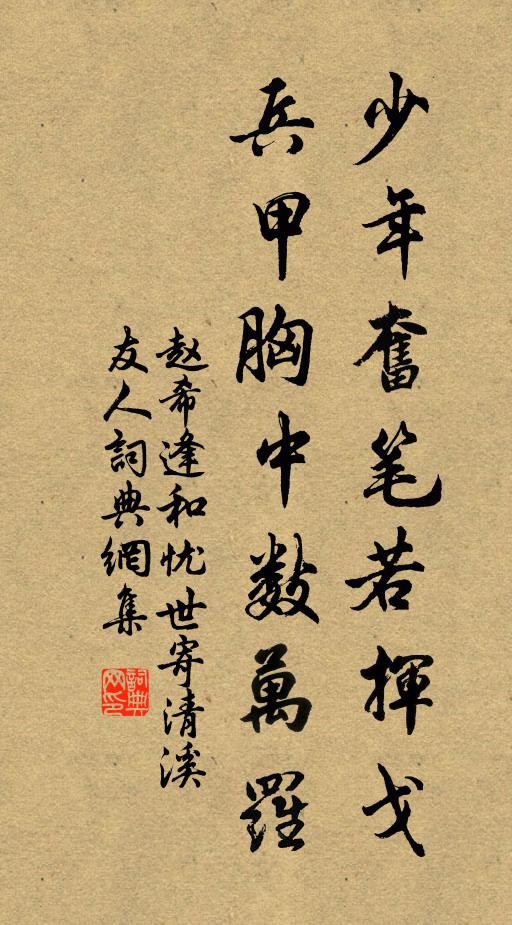 少年奮笔若揮戈
兵甲胸中数萬羅
赵希逢和忧世寄清溪
友人詞典網集
詞典
网印